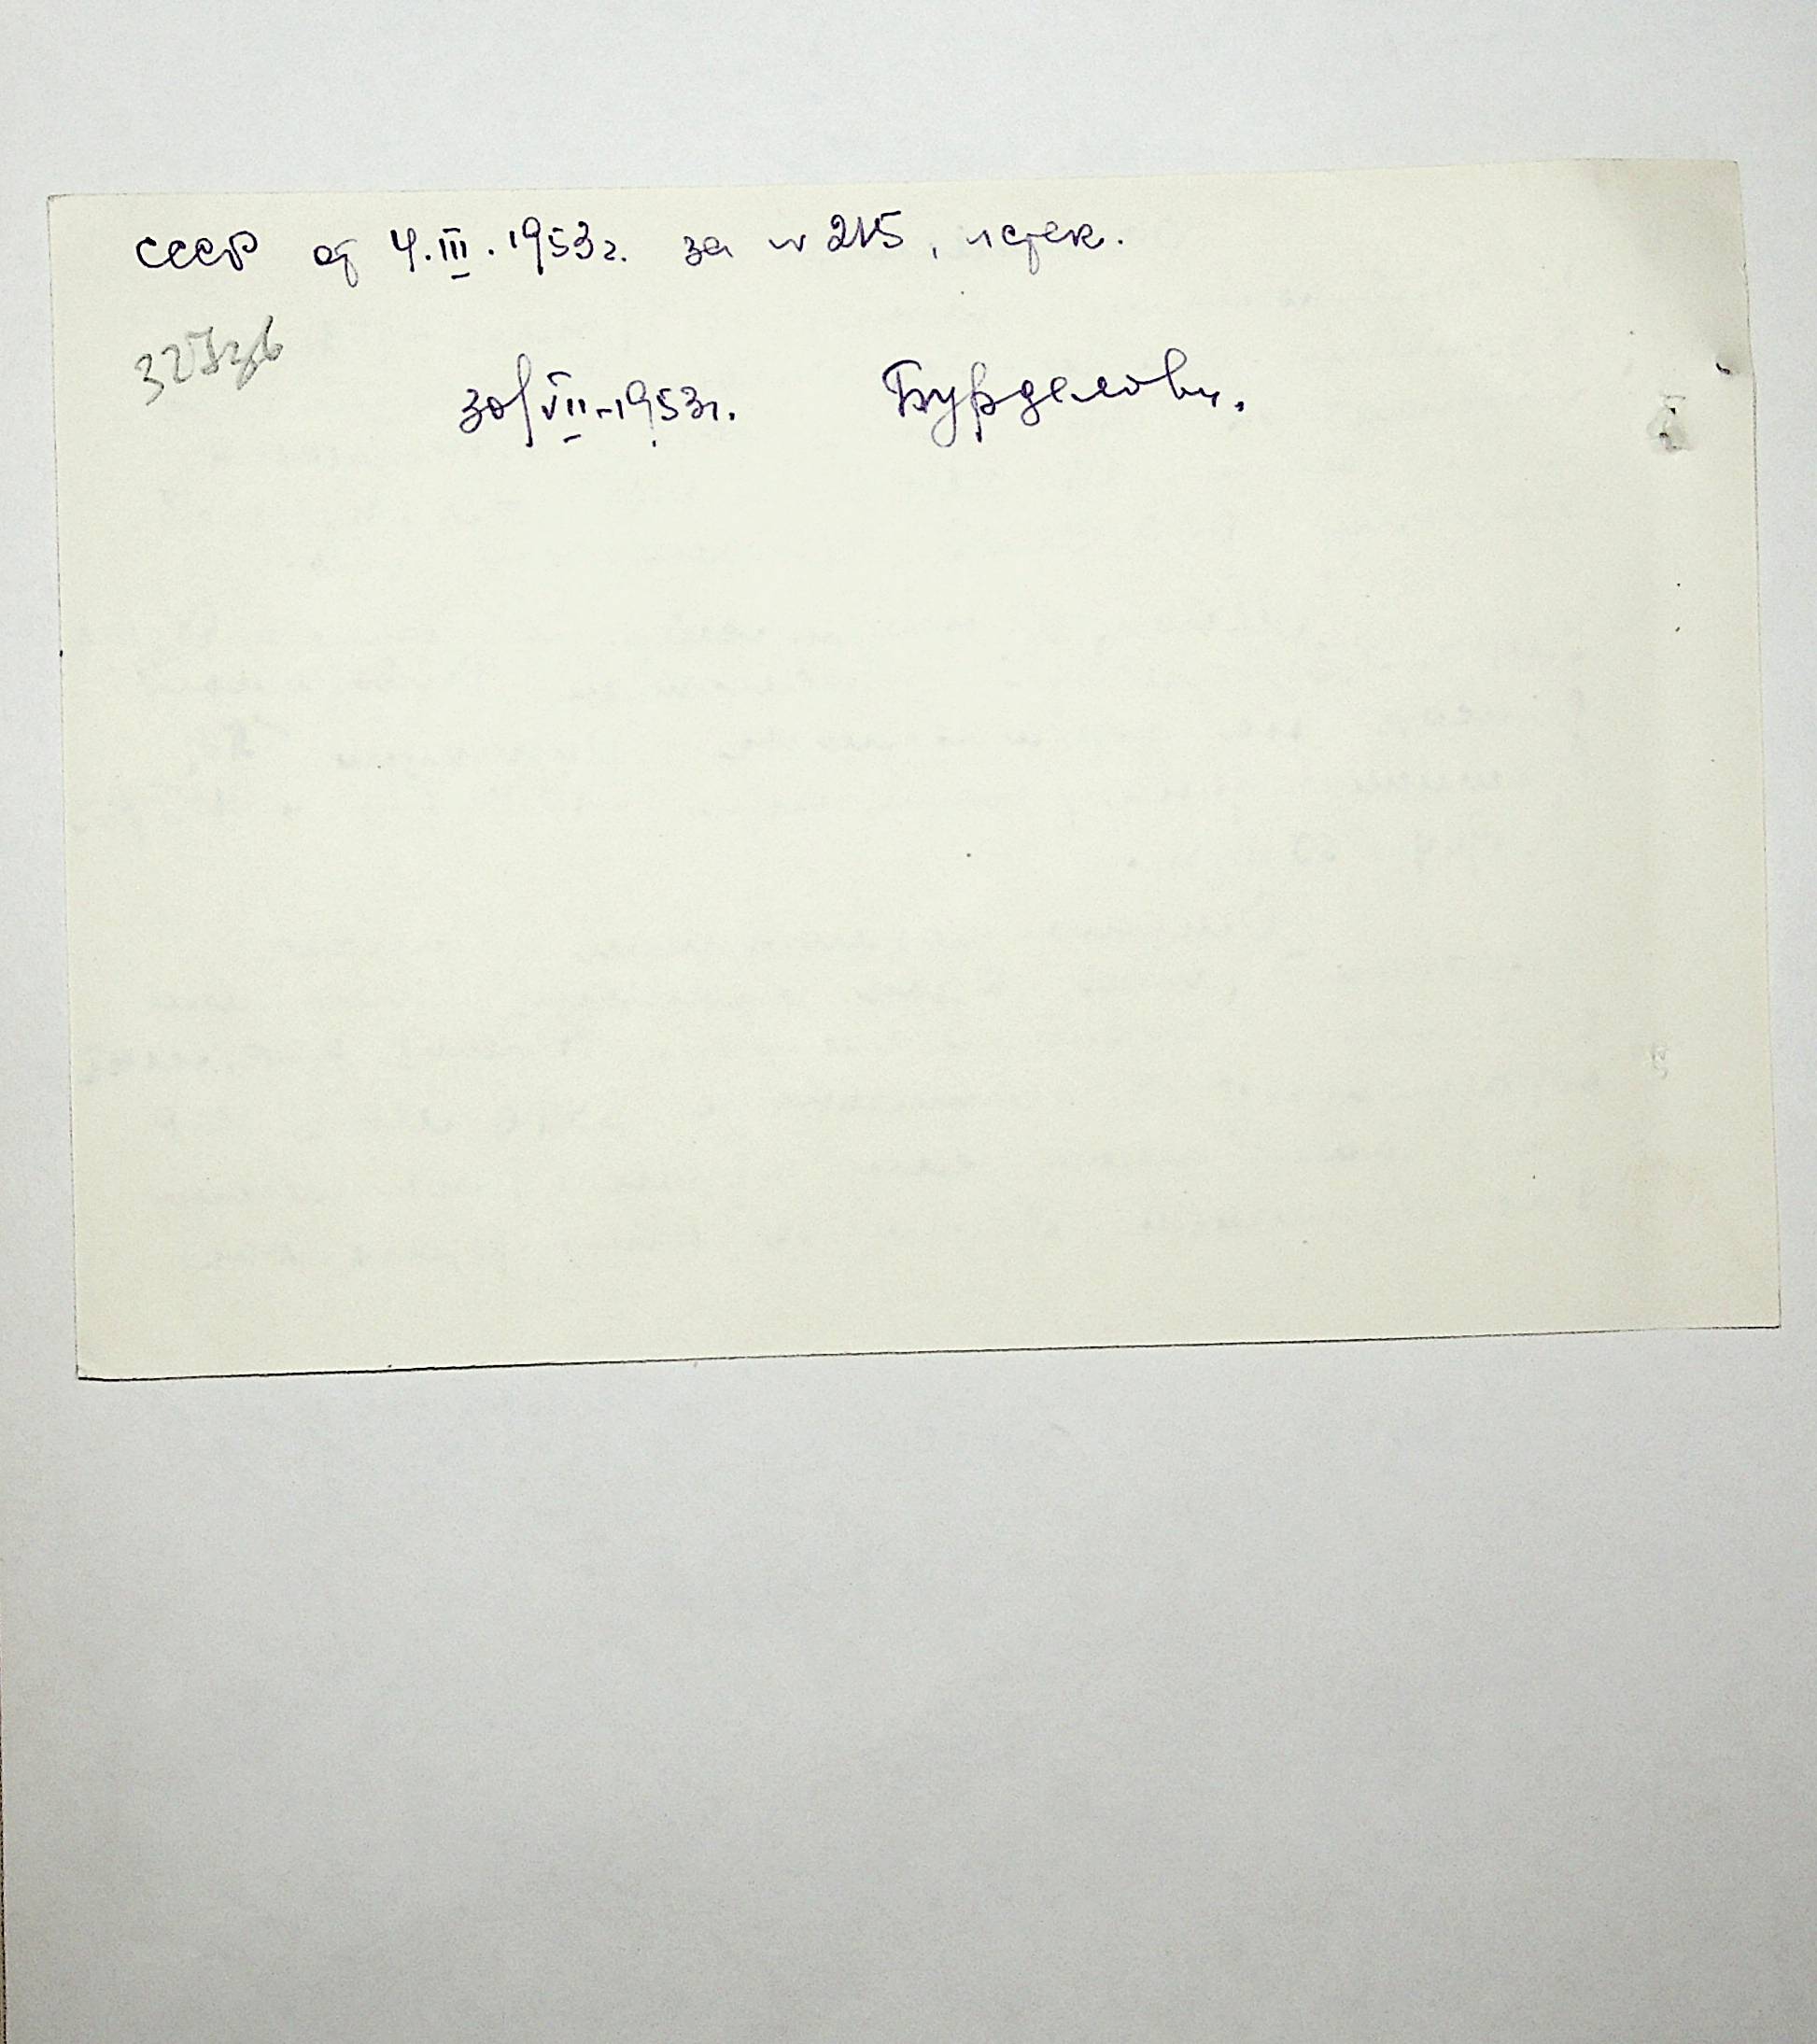 СССР от 4.III.1953г. за № 215, истек.
30/VII-1953г. Бурделови.